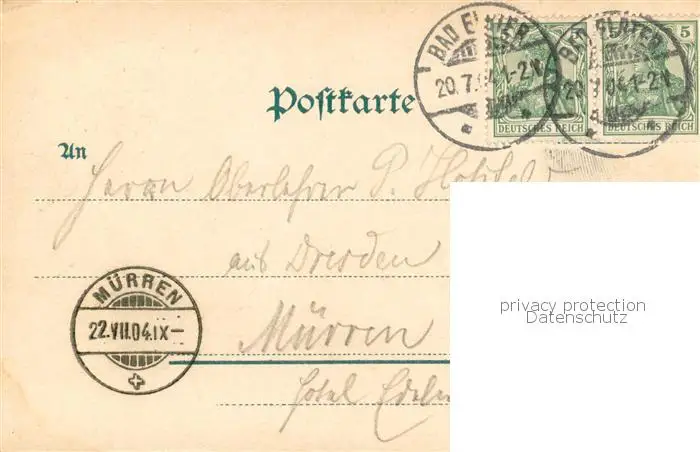 Postkarte
BAD ELSTER
20.7.04.1-2N.
BAD ELSTER
20.7.04.1-2N.
5
DEUTSCHES REICH
DEUTSCHES REICH
An
Herrn Oberlehrer P.
aus Dresden
MÜRREN
22.VII.04.IX–
Mürren
Hotel
privacy protection
Datenschutz